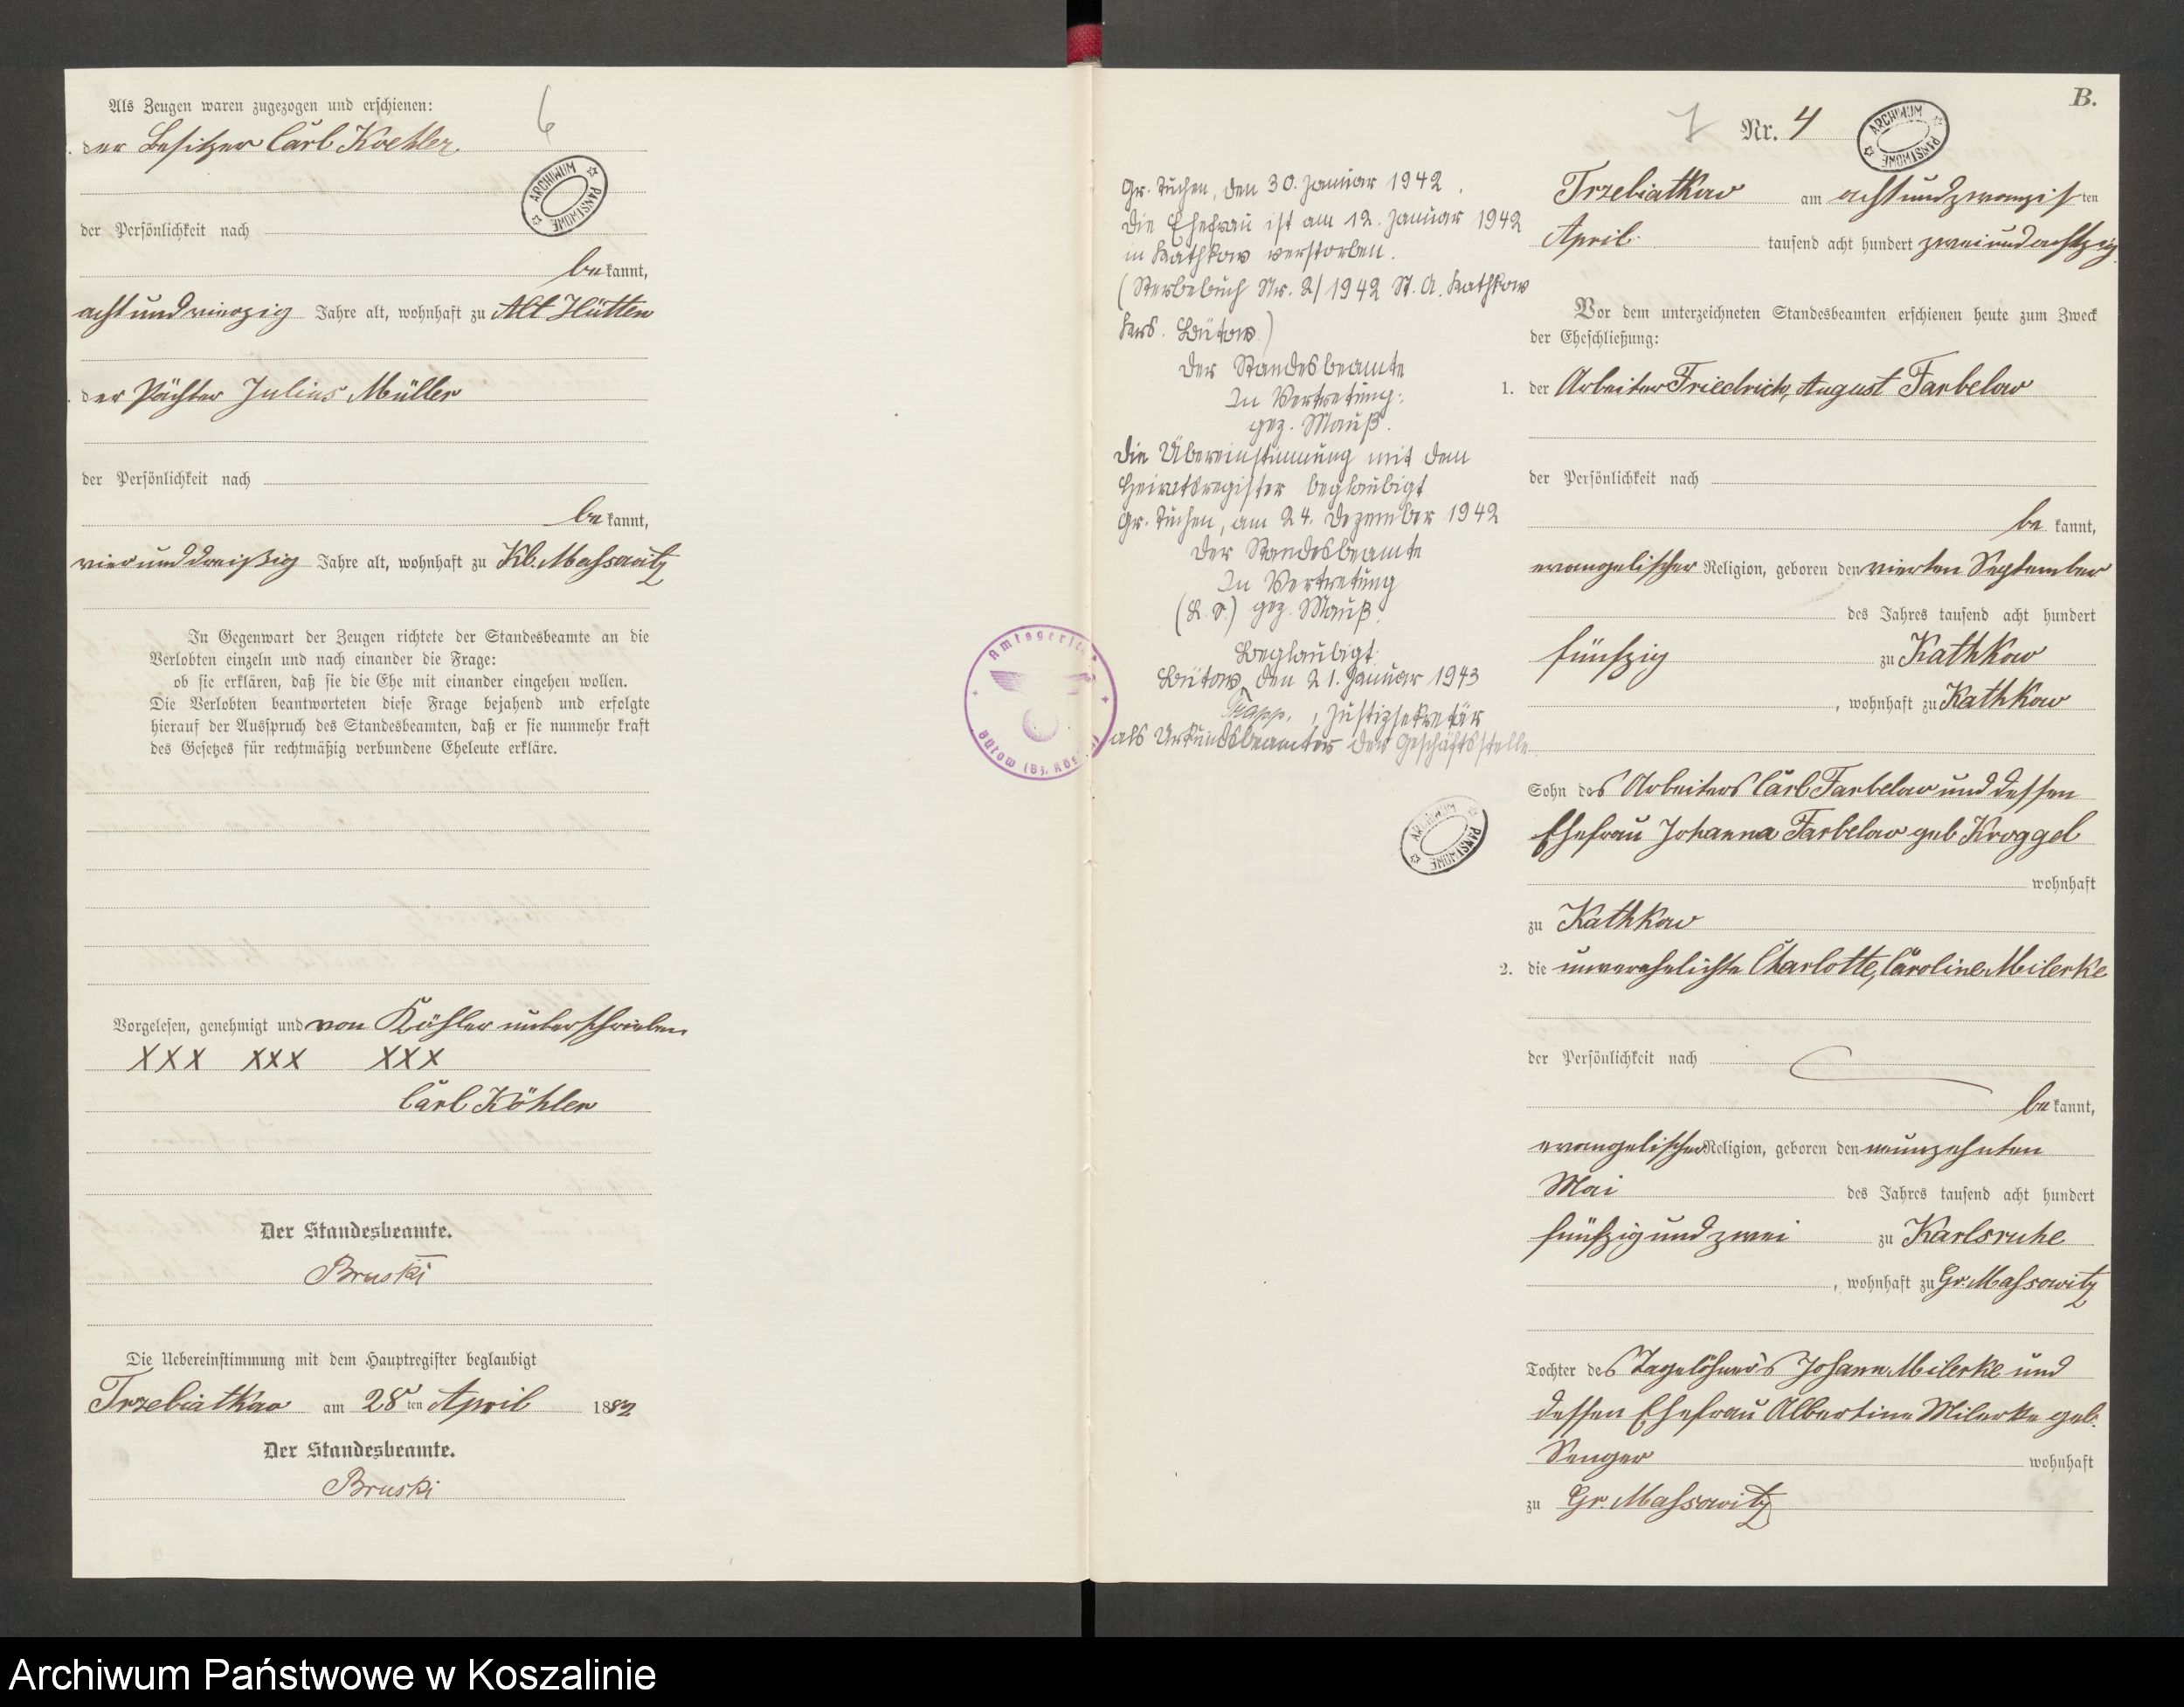 6
Als Zeugen waren zugezogen und erschienen:
der Besitzer Carl Koehler
ARCHIWUM PAŃSTWOWE
der Persönlichkeit nach
bekannt,
achtundvierzig Jahre alt, wohnhaft zu Alt Hütten
der Pächter Julius Müller
der Persönlichkeit nach
bekannt,
vierunddreißig Jahre alt, wohnhaft zu Kl. Massowitz
In Gegenwart der Zeugen richtete der Standesbeamte an die
Verlobten einzeln und nach einander die Frage:
ob sie erklären, daß sie die Ehe mit einander eingehen wollen.
Die Verlobten beantworteten diese Frage bejahend und erfolgte
hierauf der Ausspruch des Standesbeamten, daß er sie nunmehr kraft
des Gesetzes für rechtmäßig verbundene Eheleute erkläre.
Vorgelesen, genehmigt und von Köhler unterschrieben
XXX XXX XXX
Carl Köhler
Der Standesbeamte.
Bruski
Die Uebereinstimmung mit dem Hauptregister beglaubigt
Trzebiatkow am 28ten April 1882
Der Standesbeamte.
Bruski
Gr. Tuchen, den 30. Januar 1942.
Die Ehefrau ist am 12. Januar 1942
in Kathkow verstorben.
(Sterbebuch Nr. 2/1942 St. A. Kathkow
Krs. Bütow)
Der Standesbeamte
In Vertretung:
gez. Mauß.
Die Übereinstimmung mit dem
Heiratsregister beglaubigt
Gr. Tuchen, am 24. Dezember 1942
Der Standesbeamte
In Vertretung
(L. S.) gez. Mauß.
Beglaubigt
Bütow, den 21. Januar 1943
, Justizsekretär
als Urkundsbeamter der Geschäftsstelle
Amtsgericht
Bütow (Bz.
ARCHIWUM PAŃSTWOWE
B.
7 Nr. 4
ARCHIWUM PAŃSTWOWE
Trzebiatkow am achtundzwanzigsten
April tausend acht hundert zweiundachtzig
Vor dem unterzeichneten Standesbeamten erschienen heute zum Zweck
der Eheschließung:
1. der Arbeiter Friedrich, August Farbelow
der Persönlichkeit nach
be kannt,
evangelischer Religion, geboren den vierten September
des Jahres tausend acht hundert
fünfzig zu Kathkow
, wohnhaft zu Kathkow
Sohn des Arbeiters Carl Farbelow und dessen
Ehefrau Johanna Farbelow geb Kroggel
wohnhaft
zu Kathkow
2. die unverehelichte Charlotte, Caroline Milerke
der Persönlichkeit nach
bekannt,
evangelischer Religion, geboren den neunzehnten
Mai des Jahres tausend acht hundert
fünfzig und zwei zu Karlsruhe
, wohnhaft zu Gr. Massowitz
Tochter des Tagelöhners Johann Milerke und
dessen Ehefrau Albertine Milerke geb.
Senger wohnhaft
zu Gr. Massowitz
Archiwum Państwowe w Koszalinie